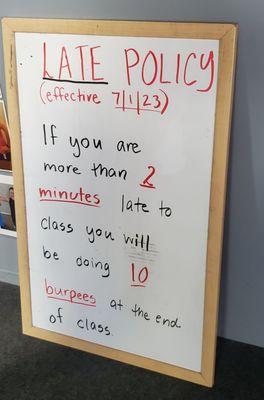 LATE POLICY
(effective 7/1/23)
If you are
more than 2
minutes late to
class you will
be doing 10
burpees at the end
of class.